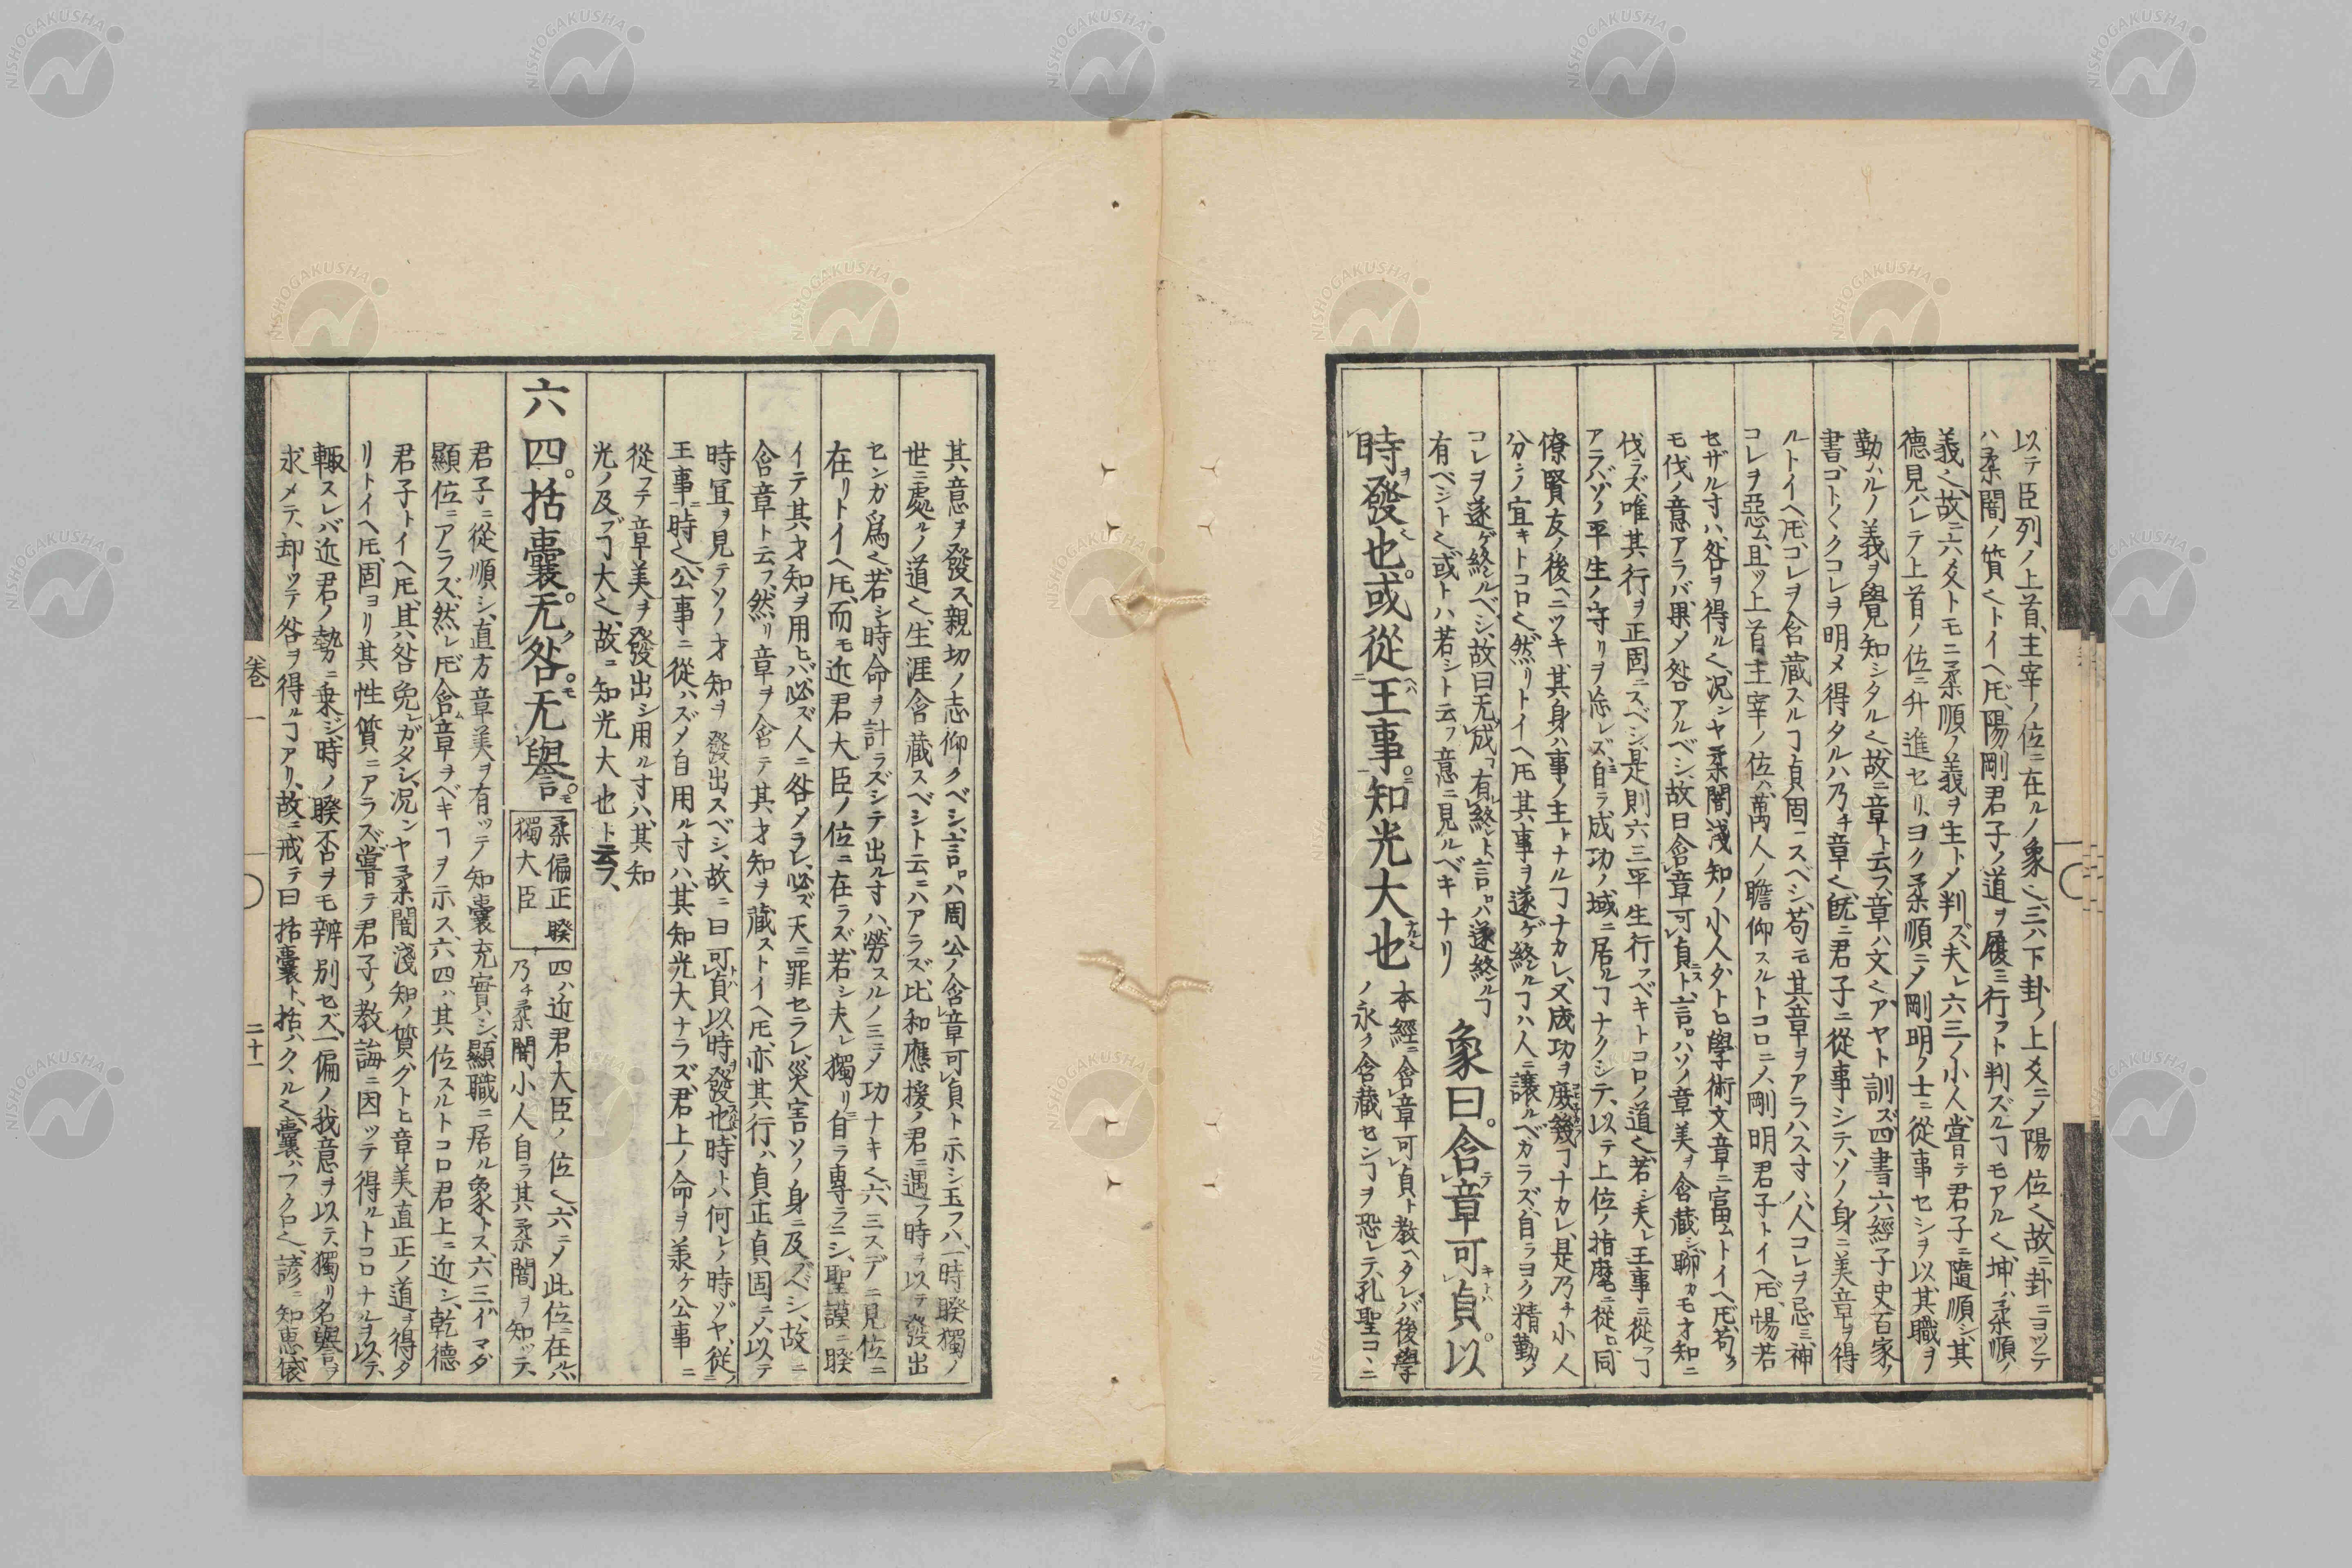 以テ臣列ノ上首、主宰ノ位ニ在ルノ象ㄟ、三ハ下卦ノ上爻ニㄨ陽位ㄟ、故ニ卦ニヨツテ
ハ柔闇ノ質ㄟトイヘ𪜈、陽剛君子ノ道ヲ履ミ行フト判ズルヿモアルㄟ、坤ハ柔順ノ
義ㄟ、故ニ六爻トモニ柔順ノ義ヲ生トㄨ判ズ、夫レ六三ノ小人、嘗テ君子ニ隨順シ、其
德見ハレテ上首ノ位ニ升進セリ、ヨク柔順ニㄨ剛明ノ士ニ從事セシヲ以、其職ヲ
勤ハルノ義ヲ覺知シタルㄟ、故ニ章ト云フ、章ハ文ㄟ、アヤト訓ズ、四書六經子史百家ノ
書、コト〱クコレヲ明メ得タルハ乃チ章ㄟ、既ニ君子ニ從事シテ、ソノ身ニ美章ヲ得
ルトイヘ𪜈、コレヲ含藏スルヿ貞固ニスベシ、苟モ其章ヲアラハス寸ハ、人コレヲ忌ミ、神
コレヲ惡ム、且ツ上首主宰ノ位ハ、萬人ノ瞻仰スルトコロニㄨ、剛明君子トイヘ𪜈、惕若
セザル寸ハ、咎ヲ得ルㄟ、況ンヤ柔闇淺知ノ小人、タトヒ學術文章ニ富ムトイヘ𪜈、苟クモ
モ伐ノ意アラバ、果ㄨ咎アルベシ、故曰含章可貞ト、言ハソノ章美ヲ含藏シ、聊カモ才知ニ
伐ラズ、唯其行ヲ正固ニスベシ、是則六三平生行フベキトコロノ道ㄟ、若シ夫レ王事ニ從フヿ
アラバ、ソノ平生ノ守リヲ怠レズ、自ラ成功ノ域ニ居ルヿナクシテ、以テ上位ノ指麾ニ從ヒ、同
僚賢友ノ後ヘニツキ、其身ハ事ノ主トナルヿナカレ、又成功ヲ庶幾ヿナカレ、是乃チ小人
分シノ宜キトコロㄟ、然リトイヘ𪜈其事ヲ遂ゲ終ルヿハ人ニ讓ルベカラズ、自ラヨク精勤ㄨ
コレヲ遂ゲ終ルベシ、故曰无成有終ト、言ハ遂終ルヿ
有ベシトㄟ、或トハ若シト云フ意ニ見ルベキナリ
象曰。含章可貞。以
時發也。或從王事。知光大也
本經ニ含章可貞ト教ヘタレバ、後學
ノ永ク含藏センヿヲ恐レテ、孔聖コヽニ
其意ヲ發ス、親切ノ志仰クベシ、言ハ周公ノ含章可貞ト示シ玉フハ、一時暌獨ノ
世ニ處ルノ道ㄟ、生涯含藏スベシト云ニハアラズ、比和應援ノ君ニ遇フ時ヲ以テ發出
センガ爲ㄟ、若シ時命ヲ計ラズシテ出ル寸ハ、勞スルノミニㄨ功ナキㄟ、六三スデニ見位ニ
在リトイヘ𪜈、而モ近君大臣ノ位ニ在ラズ、若シ夫レ獨リ自ラ專ラニシ、聖謨ニ暌
イテ其才知ヲ用ヒバ、必ズ人ニ咎メラレ、必ズ天ニ罪セラレ、災害ソノ身ニ及ブベシ、故ニ
含章ト云フ、然リ章ヲ含テ其才知ヲ藏ストイヘ𪜈、亦其行ハ貞正貞固ニㄨ、以テ
時宜ヲ見テソノ才知ヲ發出スベシ、故ニ曰可貞以時發也、時トハ何レノ時ゾヤ、從フ
王事ニ時ㄟ、公事ニ從ハズㄨ自用ル寸ハ、其知光大ナラズ、君上ノ命ヲ羕ケ公事ニ
從フテ章美ヲ發出シ用ル寸ハ、其知
光ノ及ブヿ大ㄟ、故ニ知光大也ト云フ、
六四。括囊。无咎。无譽。
柔偏正暌
獨大臣
四ハ近君大臣ノ位ㄟ、六ニㄨ此位ニ在ルハ、
乃チ柔闇小人自ラ其柔闇ヲ知ツテ、
君子ニ從順シ、直方章美ヲ有ツテ知囊充實シ、顯職ニ居ル象トス、六三イマダ
顯位ニアラズ、然レ𪜈含章ヲベキヿヲ示ス、六四ハ其位スルトコロ君上ニ近シ、乾德
君子トイヘ𪜈、其ハ咎免レガタシ、況ンヤ柔闇淺知ノ質、タトヒ章美直正ノ道ヲ得タ
リトイヘ𪜈、固ヨリ其性質ニアラズ、嘗テ君子ノ教誨ニ因ツテ得ルトコロナルヲ以テ、
輙スレバ近君ノ勢ニ乗ジ、時ノ暌否ヲモ辨別セズ、一偏ノ我意ヲ以テ、獨リ名譽ヲ
求メテ、却ツテ咎ヲ得ルヿアリ、故ニ戒テ曰括囊ト、括ハクヽルㄟ、囊ハフクロㄟ、諺ニ知惠袋
卷一
二十一